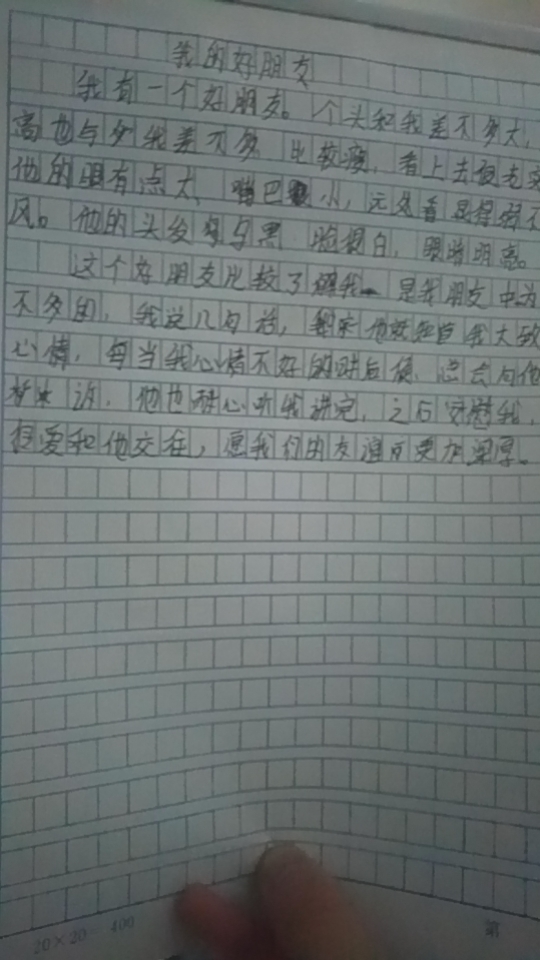 我的好朋友
我有一个好朋友。个头和我差不多大,
高也与我差不多 比较瘦,看上去很老实
他的眼有点大 嘴巴小,远处看显得弱不
风。他的头发乌黑 脸很白,眼睛明亮。
这个好朋友比较了解我 是我朋友中为
不多的,我说几句话,他就知道我大致
心情,每当我心情不好的时后候,总会向他
诉,他也耐心听我讲完,之后安慰我,
很爱和他交往,愿我们的友谊可更加深厚。
20×20 400
第